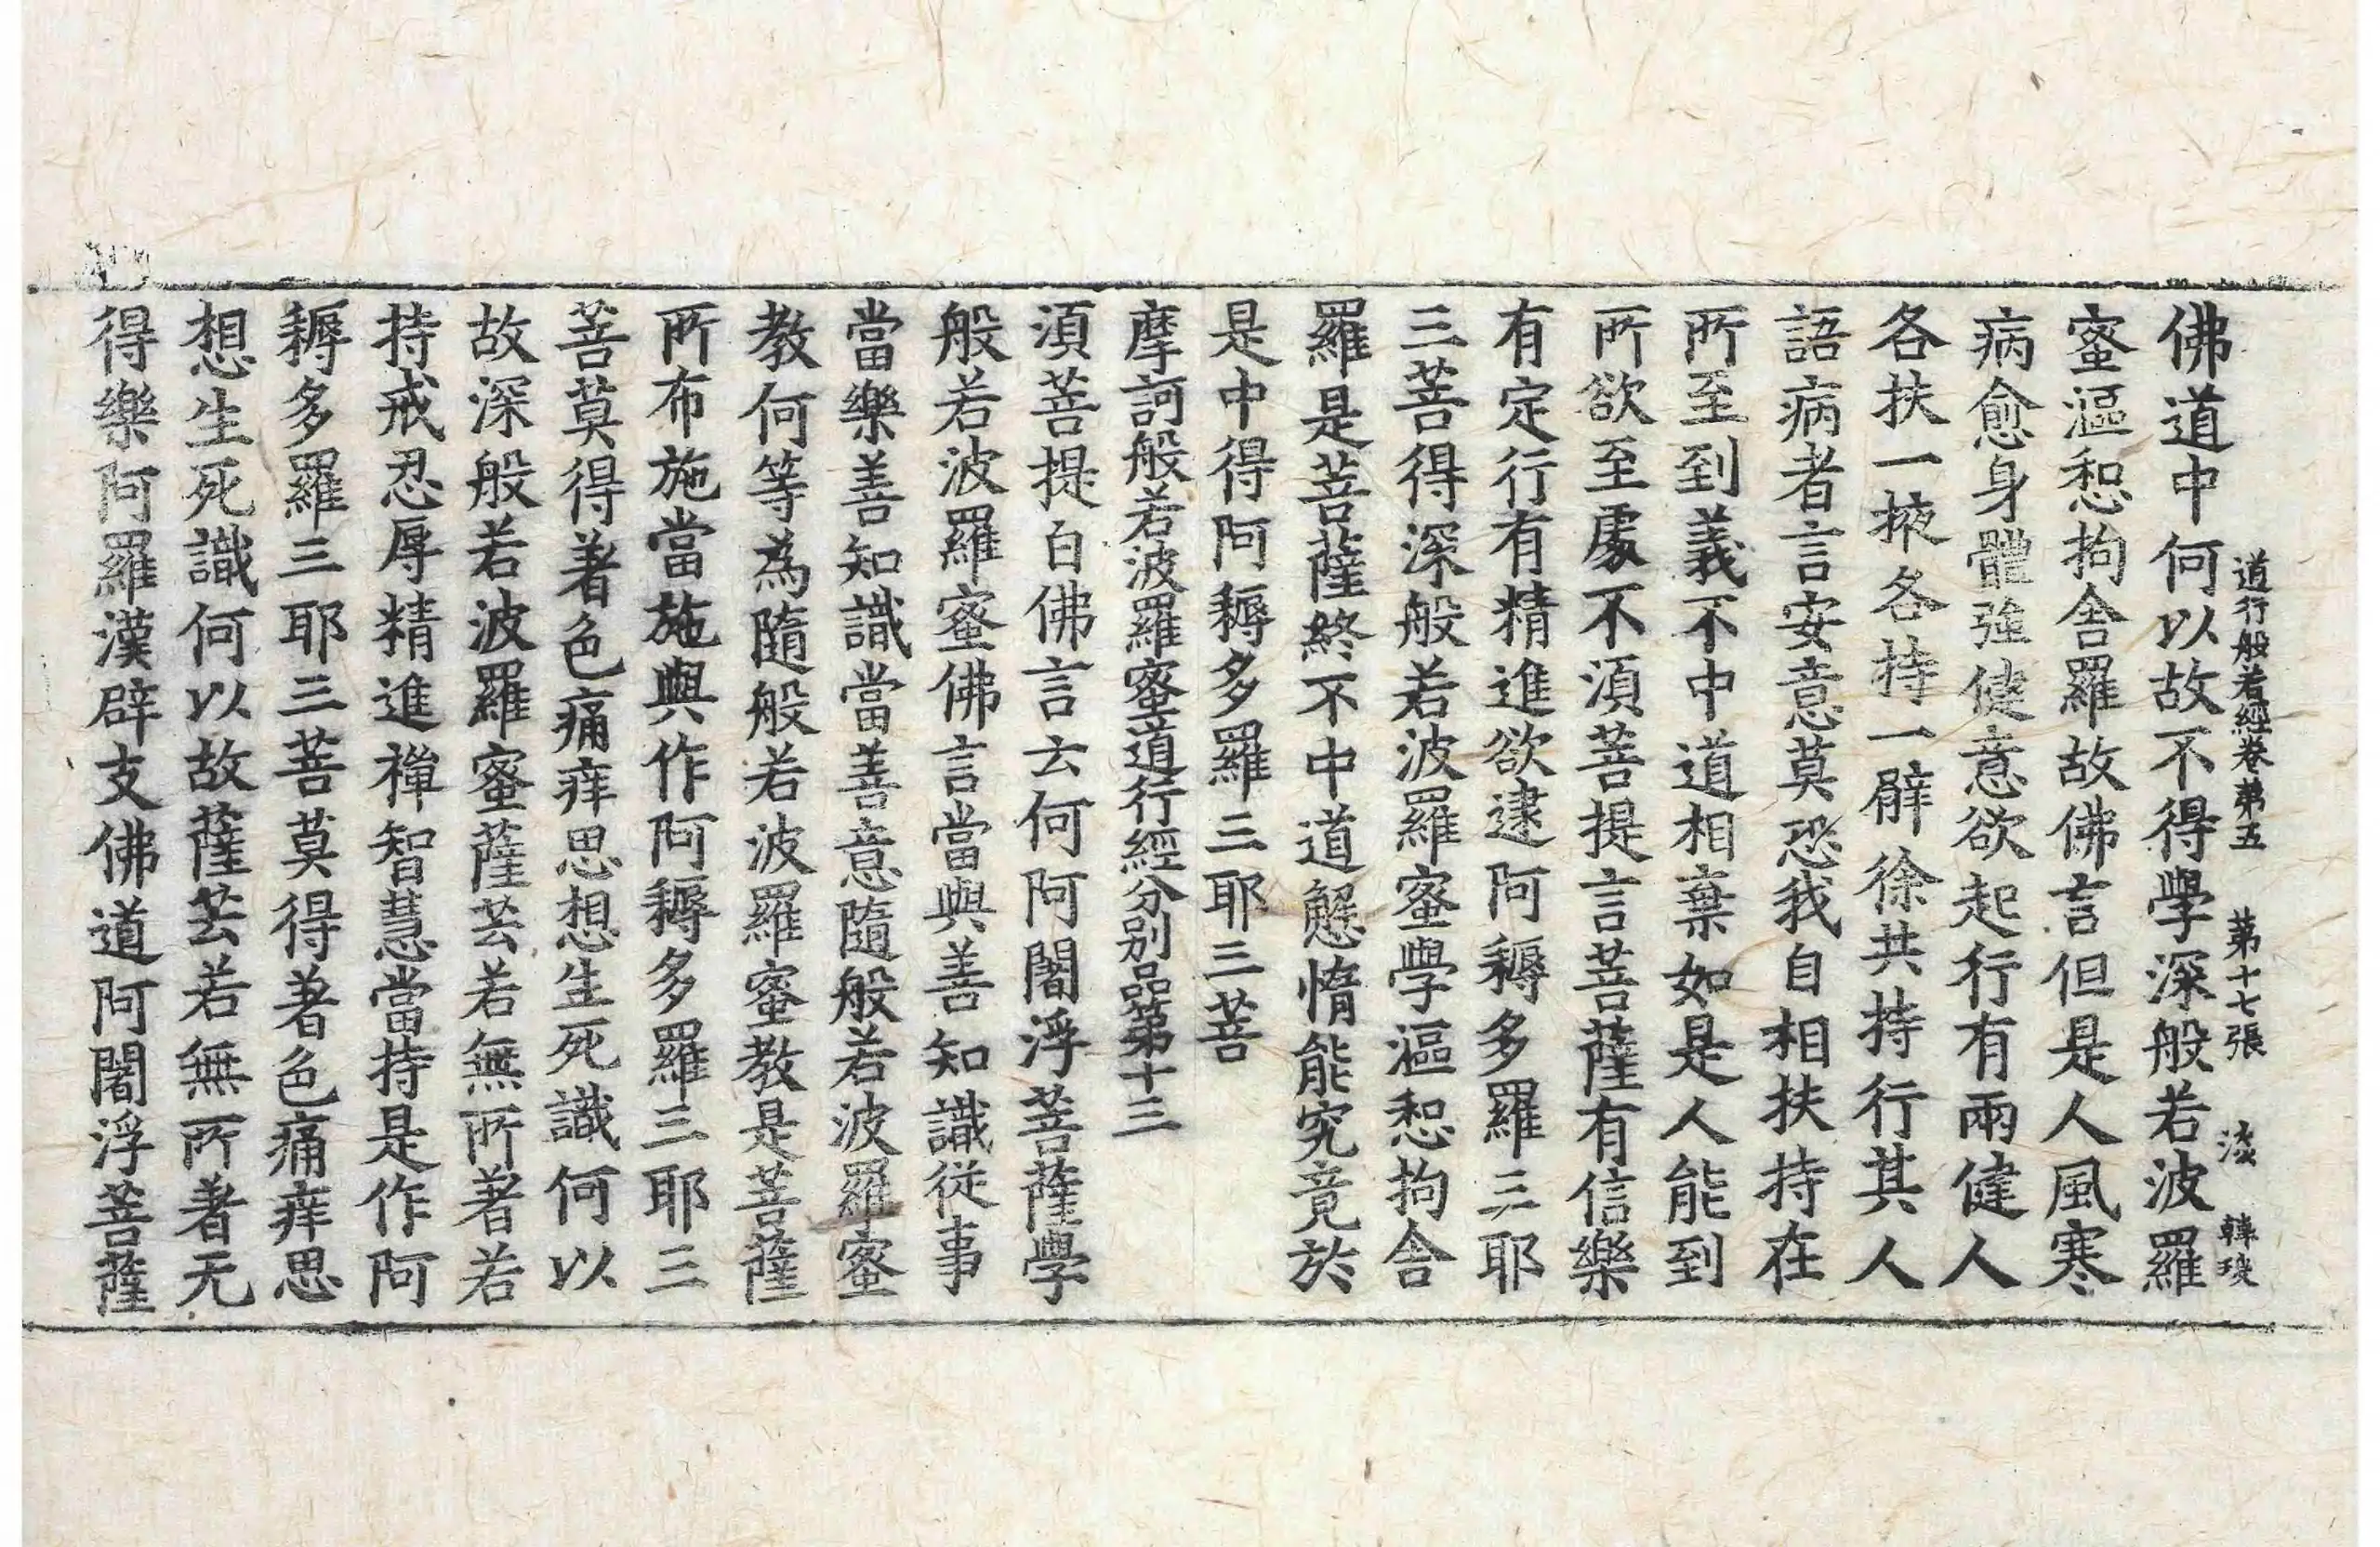 道行般若經卷第五 第十七張 淡 韓琰
佛道中何以故不得學深般若波羅
蜜漚惒拘舍羅故佛言但是人風寒
病愈身體强健意欲起行有兩健人
各扶一掖各持一臂徐共持行其人
語病者言安意莫恐我自相扶持在
所至到義不中道相棄如是人能到
所欲至處不湏菩提言菩薩有信樂
有定行有精進欲逮阿耨多羅三耶
三菩得深般若波羅蜜學漚惒拘舍
羅是菩薩終不中道懈惰能究竟於
是中得阿耨多羅三耶三菩
摩訶般若波羅蜜道行經分别品第十三
湏菩提白佛言云何阿闍浮菩薩學
般若波羅蜜佛言當與善知識從事
當樂善知識當善意隨般若波羅蜜
教何等為隨般若波羅蜜教是菩薩
所布施當施與作阿耨多羅三耶三
菩莫得著色痛痒思想生死識何以
故深般若波羅蜜薩芸若無所著若
持戒忍辱精進禪智慧當持是作阿
耨多羅三耶三菩莫得著色痛痒思
想生死識何以故薩芸若無所著无
得樂阿羅漢辟支佛道阿闍浮菩薩